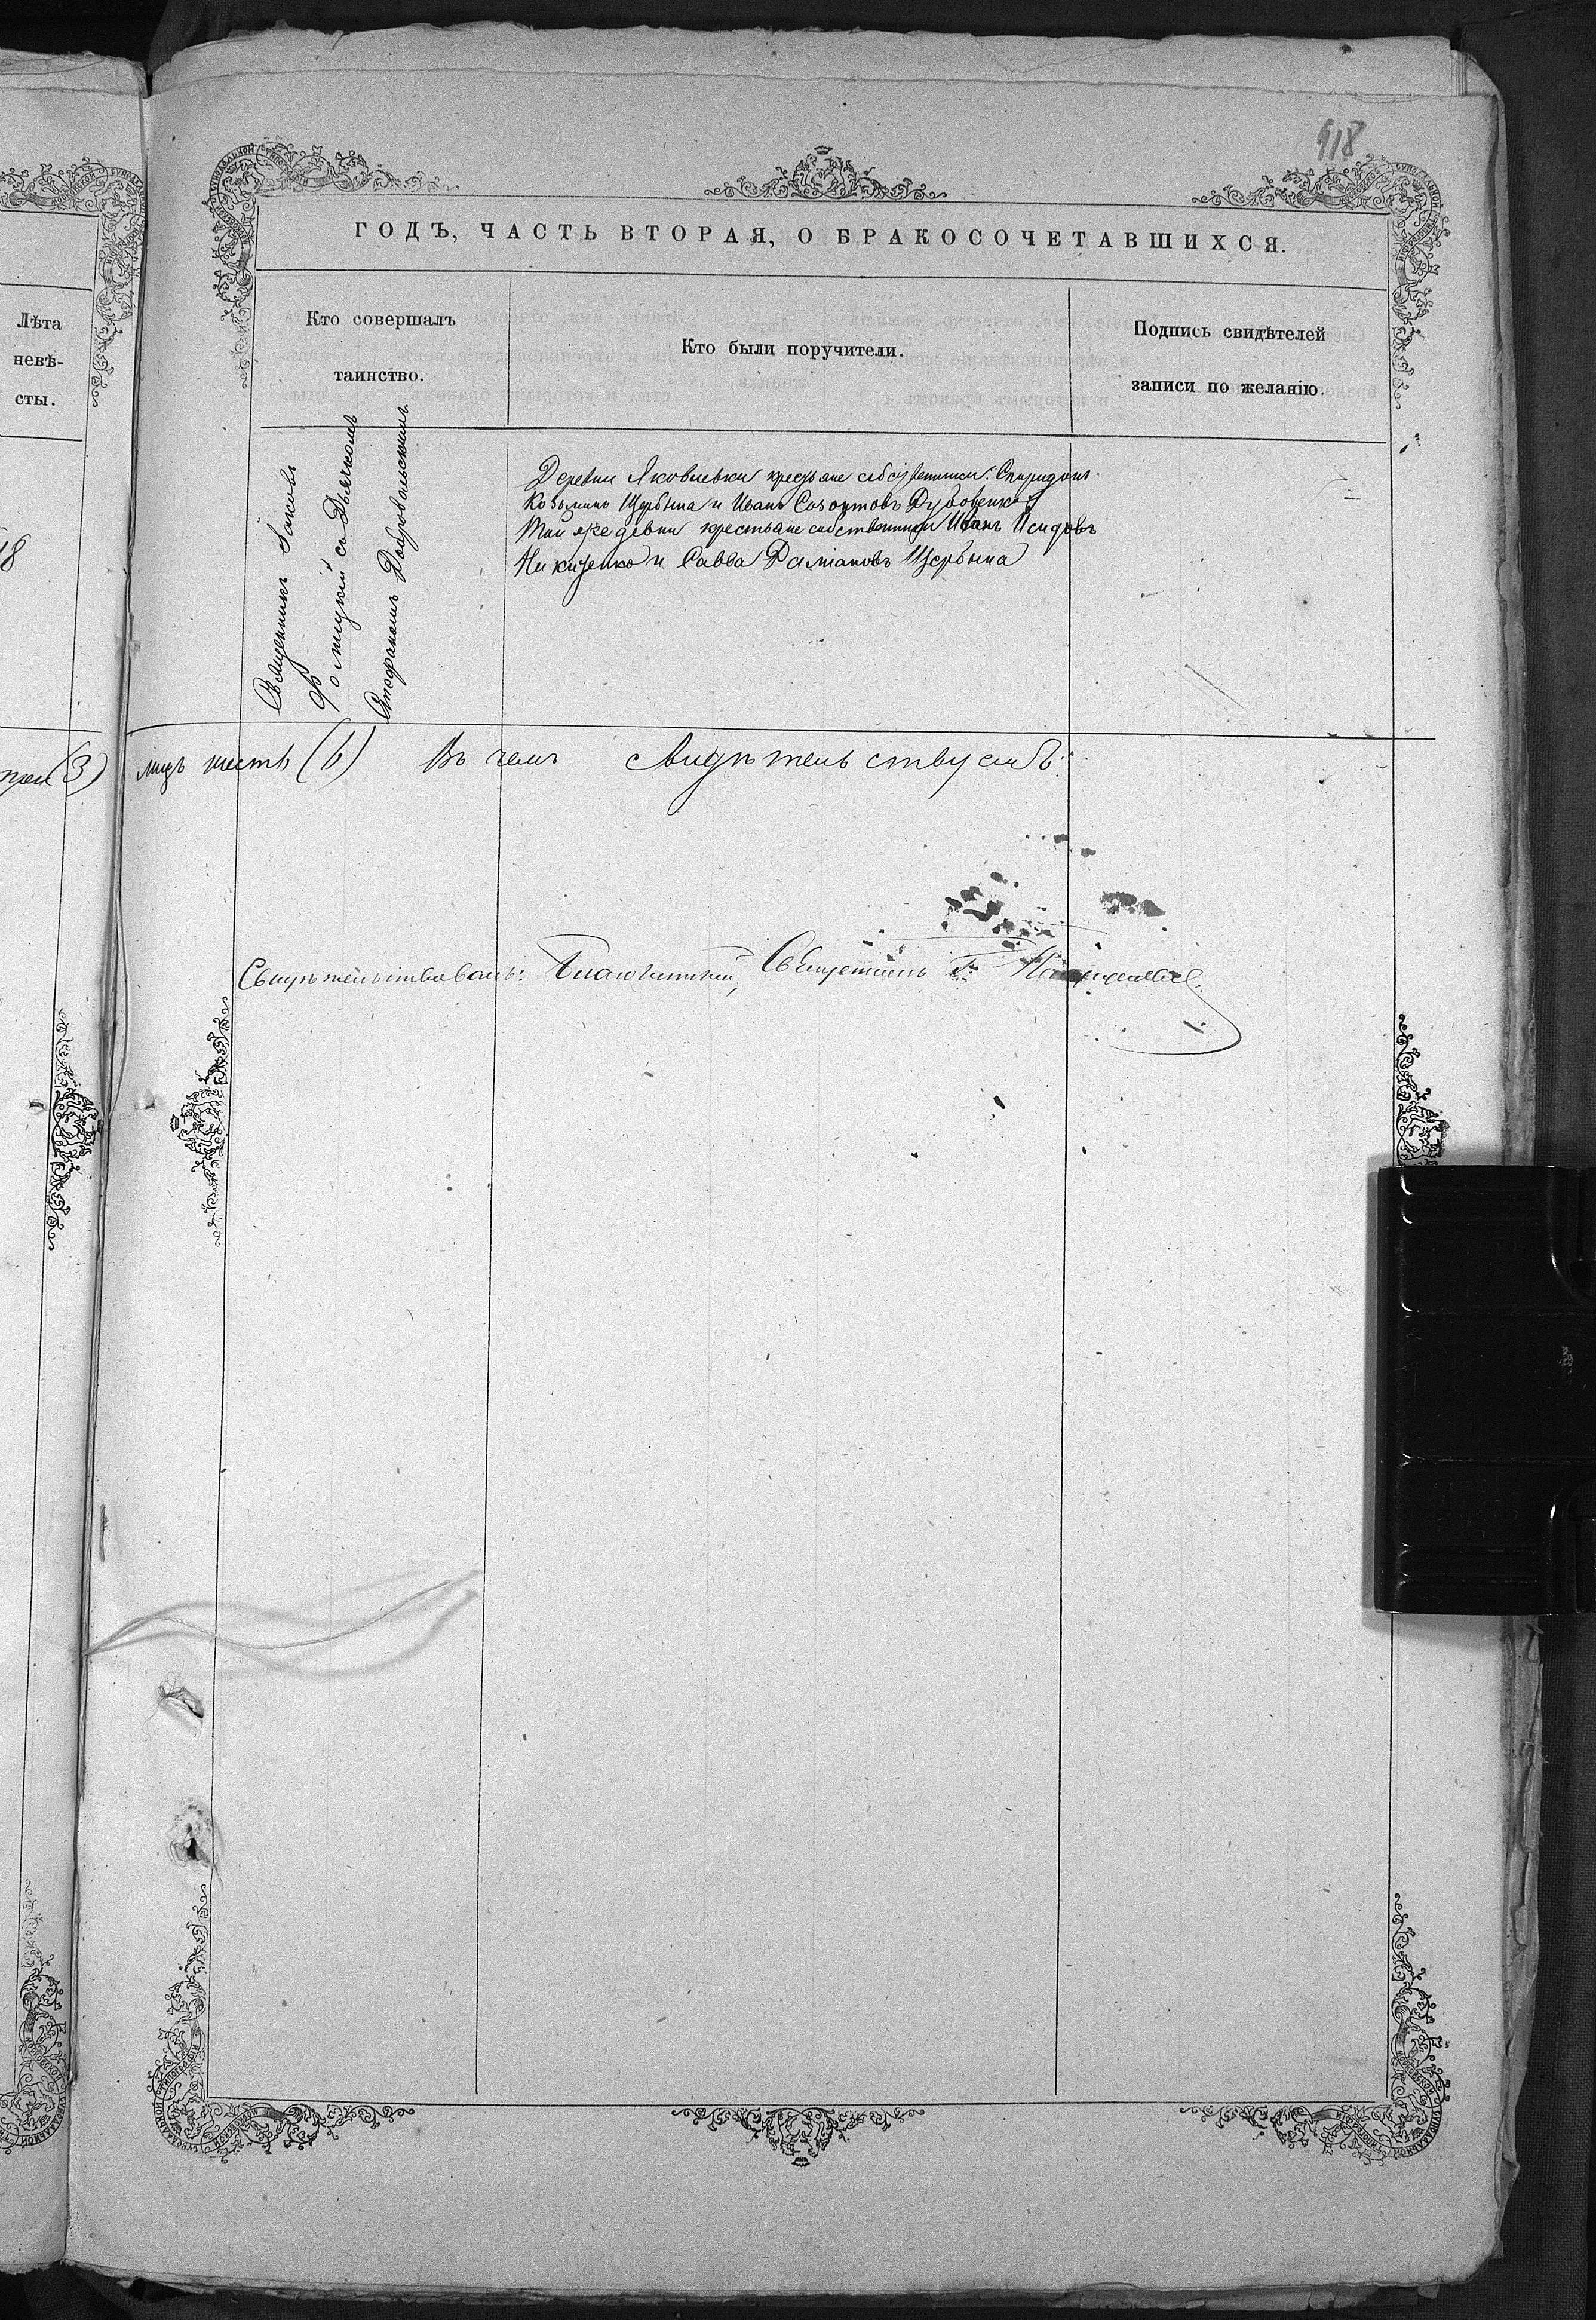 918
ГОДЪ, ЧАСТЬ ВТОРАЯ, О БРАКОСОЧЕТАВШИХСЯ.
Лѣта
невѣ-
сты.
Кто совершалъ
таинство.
Кто были поручители.
Подпись свидѣтелей
записи по желанію.
18
Священникъ Іаковъ
съ Дьячкомъ
Стефаномъ Добровольскимъ
Деревни Яковлевки крестьяне собственники: Спиридонъ
Козьминъ Щербина и Иванъ Созонтовъ Дубовенко
той же девни крестьане собственники Иванъ Исидовъ
Никитенко и Савва Даміановъ Щербина
(3) лицъ шесть (6) Въ чемъ свидѣтельствуемъ:
Свидѣтельствовалъ: Благочинный, Священникъ